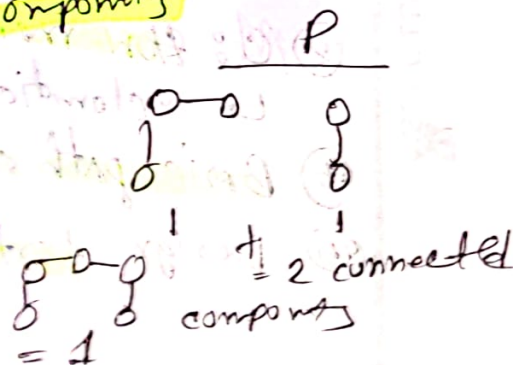 omponents
P
1 + 1
= 2 connected
components
= 1